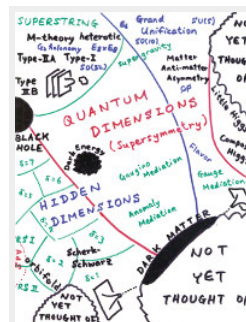 SUPERSTRING
M-theory heterotic
G₂ Holonomy E8×E8
Type-IIA Type-I
SO(32)
Type
IIB
Grand
Unification
SU(5)
SO(10)
Supergravity
Matter
Anti-matter
Asymmetry
CP
NOT
YET
THOUGHT OF
Little Higgs
Composite
Higgs
QUANTUM
DIMENSIONS
(Supersymmetry)
BLACK
HOLE
Dark Energy
Flavor
Gaugino
Mediation
Gauge
Mediation
Anomaly
Mediation
HIDDEN
DIMENSIONS
δ=7
δ=6
δ=3
δ=2
δ=1
Scherk-
Schwarz
RS I
RS II
orbifold
DARK MATTER
NOT
YET
THOUGHT OF
NOT
YET
THOUGHT OF